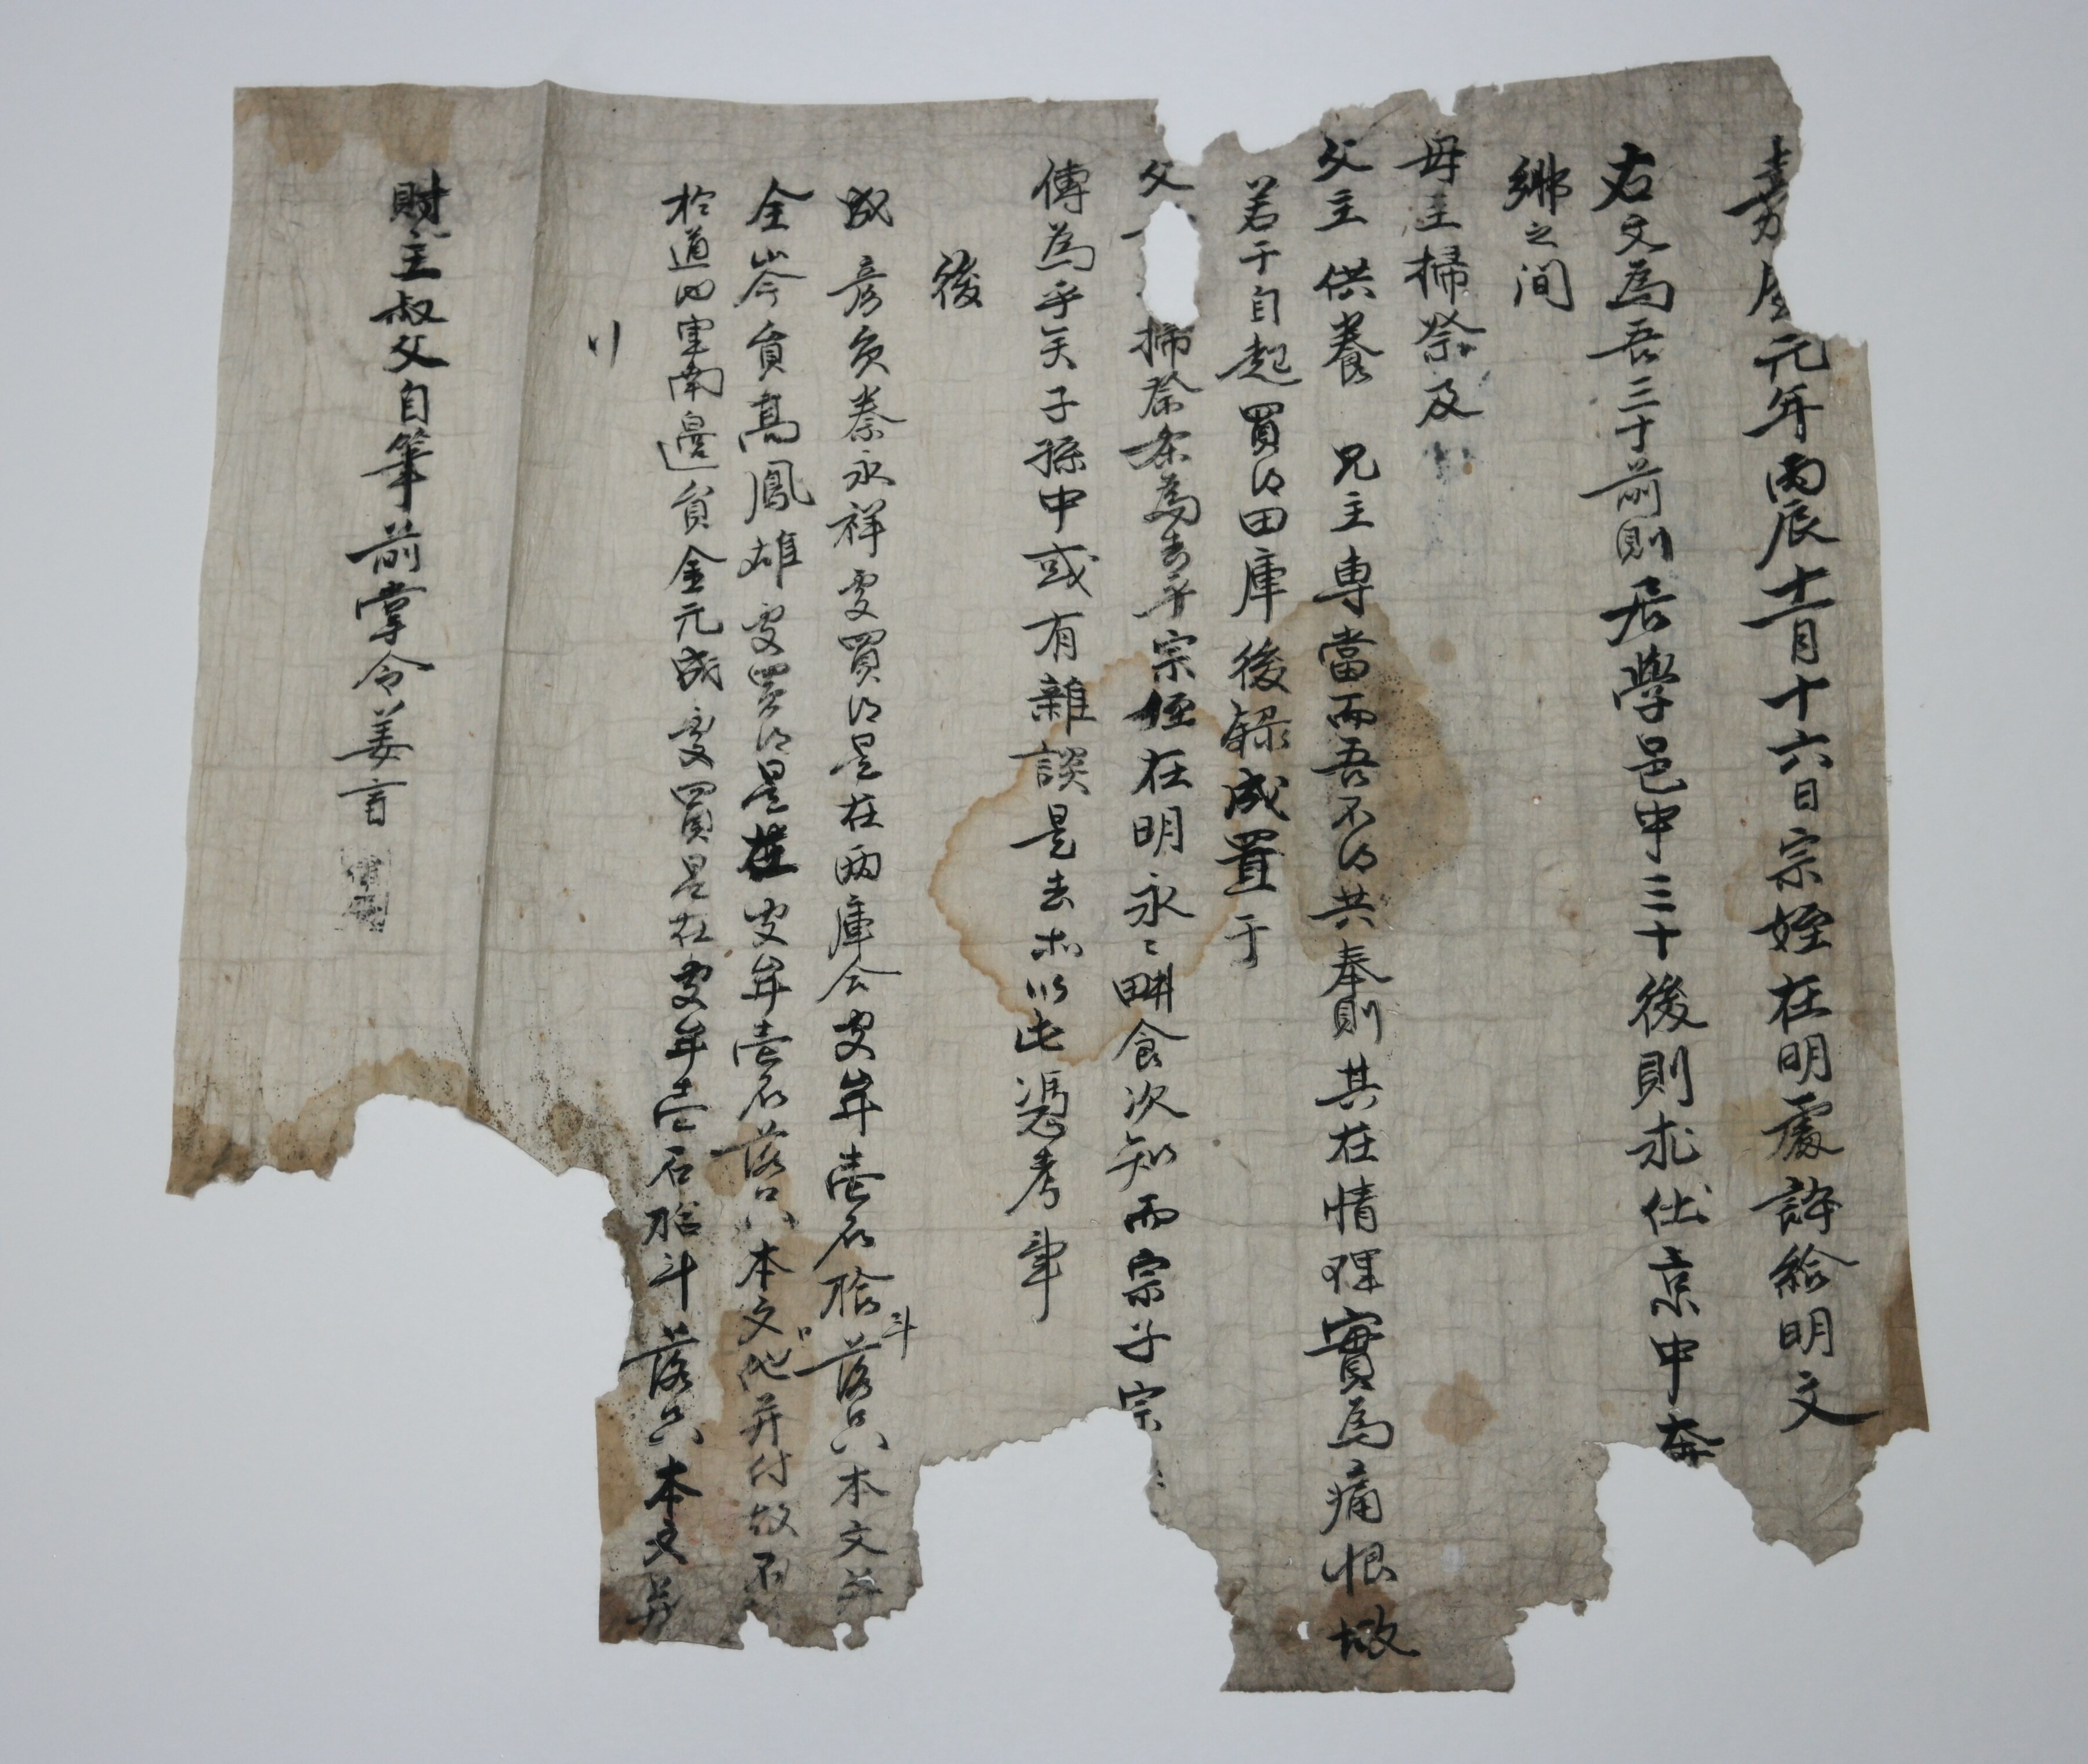 嘉慶元年丙辰十二月十六日宗姪在明處許給明文
右文為吾三十前則居學邑中三十後則求仕京中奔
鄕之間
母主掃祭及
父主供養 兄主專當而吾不得共奉則其在情理實為痛恨故
若干自起買得田庫後錄成置于
父 掃祭条為去乎宗姪在明永〻畊食次知而宗子宗
傳為乎矣子孫中或有雜談是去本以此憑考事
後
成彦負泰永祥處買得是在兩庫合皮牟壹石拾斗落只本文幷
全岺負髙鳳雄處買得是在皮牟壹石落只本文他幷付故不
於道內軍南邊負金元成處買是在皮牟壹石拾斗落只本文幷
財主叔父自筆前掌令姜